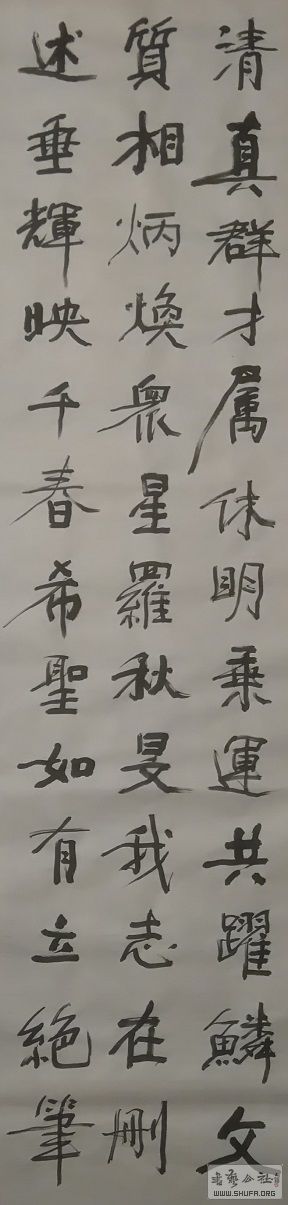 清真群才属休明乘運共躍鱗文
質相炳煥衆星羅秋旻我志在刪
述垂輝映千春希聖如有立絕筆
書艺公社
WWW.SHUFA.ORG